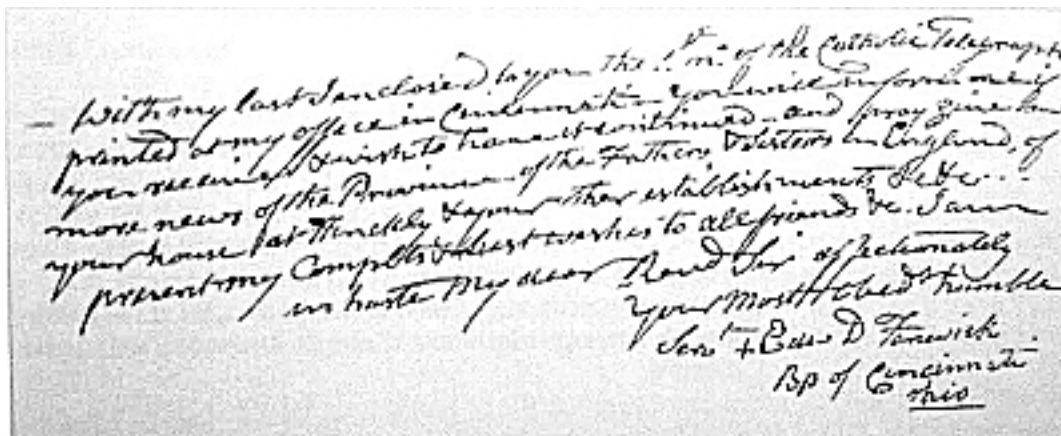 — With my last I enclosed to you the 1st no. of the Catholic Telegraph
printed at my office in Cincinnati - you will inform me if
you receive it & wish to have it continued - and pray give me
more news of the Province - of the Fathers & Sisters in England, of
your house at Hinckly & your other establishments &c &c -
present my Complts & best wishes to all friends &c I am
in haste My dear Revd Sir affectionately
your Most Obedt humble
Servt + Edwd D Fenwick
Bp of Cincinnati
Ohio